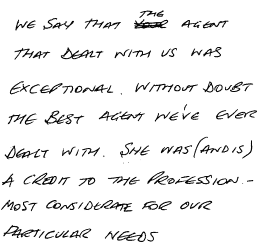 WE SAY THAT THE AGENT
THAT DEALT WITH US WAS
EXCEPTIONAL. WITHOUT DOUBT
THE BEST AGENT WE'VE EVER
DEALT WITH. SHE WAS (AND IS)
A CREDIT TO THE PROFESSION. -
MOST CONSIDERATE FOR OUR
PARTICULAR NEEDS